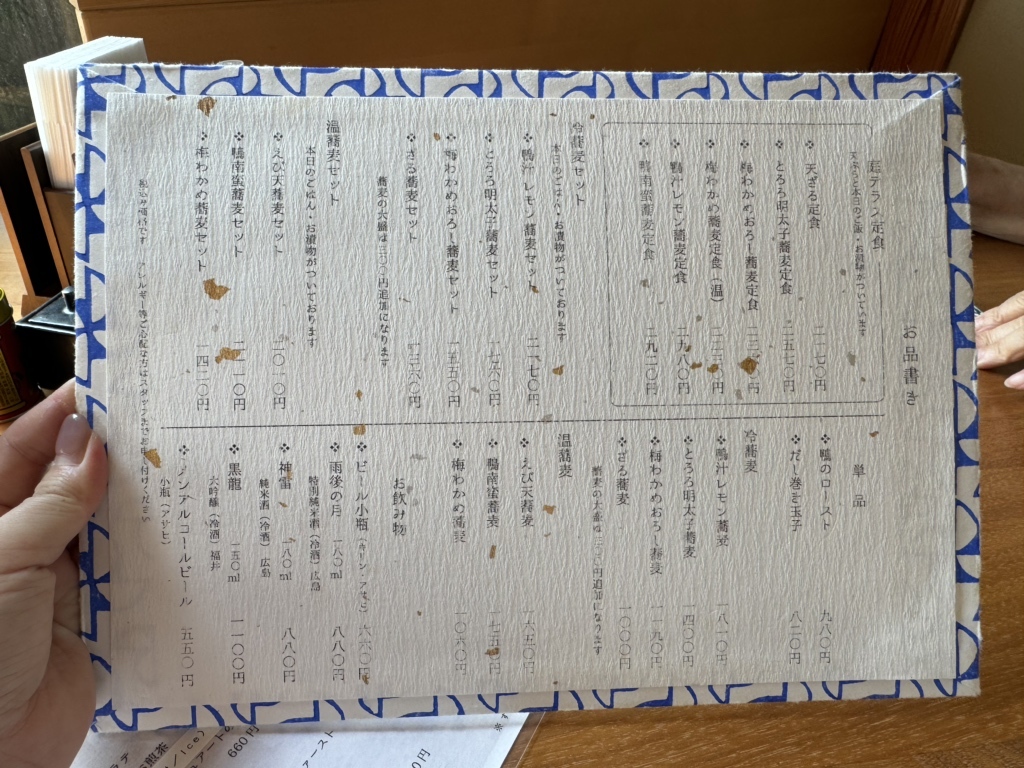 お品書き
庭テラス定食
天ざる定食
とろろ明太子蕎麦定食 二五七〇円
梅わかめおろし蕎麦定食
梅わかめ蕎麦定食(温)
鴨汁レモン蕎麦定食 二九八〇円
鴨南蛮蕎麦定食 二九二〇円
冷蕎麦セット
本日のごはん・お漬物がついております
鴨汁レモン蕎麦セット 二一七〇円
とろろ明太子蕎麦セット 一七六〇円
梅わかめおろし蕎麦セット 一五五〇円
ざる蕎麦セット 一三六〇円
蕎麦の大盛は三三〇円追加になります
温蕎麦セット
本日のごはん・お漬物がついております
えび天蕎麦セット 二〇一〇円
鴨南蛮蕎麦セット 二一一〇円
梅わかめ蕎麦セット 一四二〇円
単品
鴨のロースト 九八〇円
だし巻き玉子 八二〇円
冷蕎麦
鴨汁レモン蕎麦 一八一〇円
とろろ明太子蕎麦 一四〇〇円
梅わかめおろし蕎麦 一一九〇円
ざる蕎麦 一〇〇〇円
蕎麦の大盛は三三〇円追加になります
温蕎麦
えび天蕎麦 一六五〇円
鴨南蛮蕎麦 一七五〇円
梅わかめ蕎麦 一〇六〇円
お飲み物
ビール小瓶(キリン・アサヒ) 六六〇円
雨後の月 一八〇ml 八八〇円
特別純米酒(冷酒)広島
神雷 一八〇ml 八八〇円
純米酒(冷酒)広島
黒龍 一五〇ml 一一〇〇円
大吟醸(冷酒)福井
ノンアルコールビール 五五〇円
小瓶(アサヒ)
税込み価格です アレルギー等ご心配な方はスタッフまでお申し付けください
660円